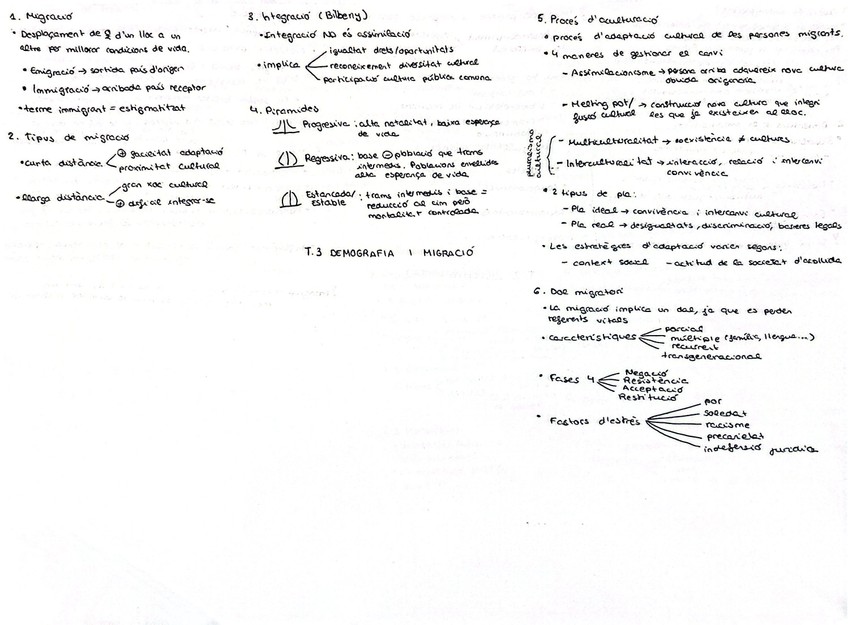 1. Migració
• Desplaçament de d'un lloc a un
altre per millorar condicions de vida.
• Emigració → sortida país d'origen
• Immigració → arribada país receptor
• terme immigrant = estigmatitzat
2. Tipus de migració
• curta distància
⊕ facilitat adaptació
proximitat cultural
• llarga distància
gran xoc cultural
⊕ difícil integrar-se
3. Integració (Bilbeny)
• Integració NO és assimilació
• implica
igualtat drets/oportunitats
reconeixement diversitat cultural
participació cultura pública comuna
4. Piràmides
Progressiva: alta natalitat, baixa esperança
de vida
Regressiva: base ⊖ població que trams
intermedis. Poblacions envellides
alta esperança de vida
Estancada/: trams intermedis i base =
estable reducció al cim però
mortalitat controlada
T.3 DEMOGRAFIA I MIGRACIÓ
5. Procés d'aculturació
• procés d'adaptació cultural de les persones migrants.
• 4 maneres de gestionar el canvi
- Assimilacionisme → persona arriba adquereix nova cultura
obvida originaria
- Melting pot/ → construcció nova cultura que integri
fusió cultural les que ja existeixen al lloc.
pluralisme
cultural
- Multiculturalitat → coexistència ≠ cultures
- Interculturalitat → interacció, relació i intercanvi
convivència
• 2 tipus de pla:
- Pla ideal → convivència i intercanvi cultural
- Pla real → desigualtats, discriminació, barreres legals
• Les estratègies d'adaptació varien segons:
- context social - actitud de la societat d'acollida
6. Dol migratori
• La migració implica un dol, ja que es perden
referents vitals.
• característiques
parcial
múltiple (família, llengua...)
recurrent
transgeneracional
• Fases 4
Negació
Resistència
Acceptació
Restitució
• Factors d'estrès
por
soledat
racisme
precarietat
indefensió jurídica